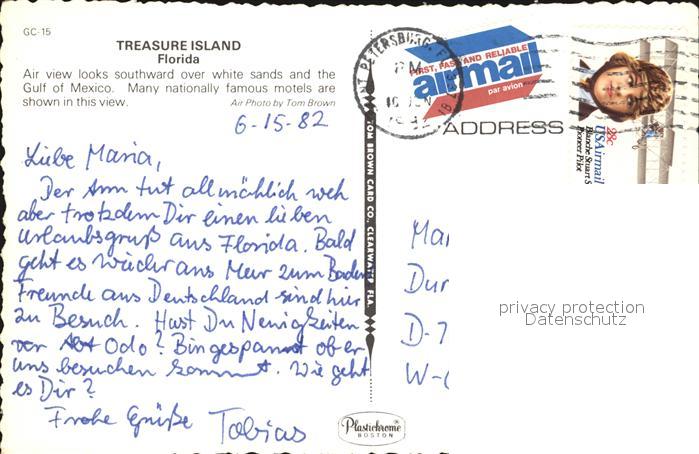 GC-15
TREASURE ISLAND
Florida
Air view looks southward over white sands and the
Gulf of Mexico. Many nationally famous motels are
shown in this view.
Air Photo by Tom Brown
6-15-82
Liebe Maria,
Der Arm tut allmählich weh
aber trotzdem Dir einen lieben
Urlaubsgruß aus Florida. Bald
geht es wieder ans Meer zum Baden
Freunde aus Deutschland sind hier
zu Besuch. Hast Du Neuigkeiten
von Odo? Bin gespannt ob er
uns besuchen kommt. Wie geht
es Dir?
Frohe Grüße Tobias
TOM BROWN CARD CO. CLEARWATER FLA.
Plastichrome
BOSTON
ST PETERSBURG, FL
PM
FIRST, FAST AND RELIABLE
airmail
par avion
28c
USAirmail
Blanche Stuart S
Pioneer Pilot
ADDRESS
Mar
Dur
D-7
W-
privacy protection
Datenschutz